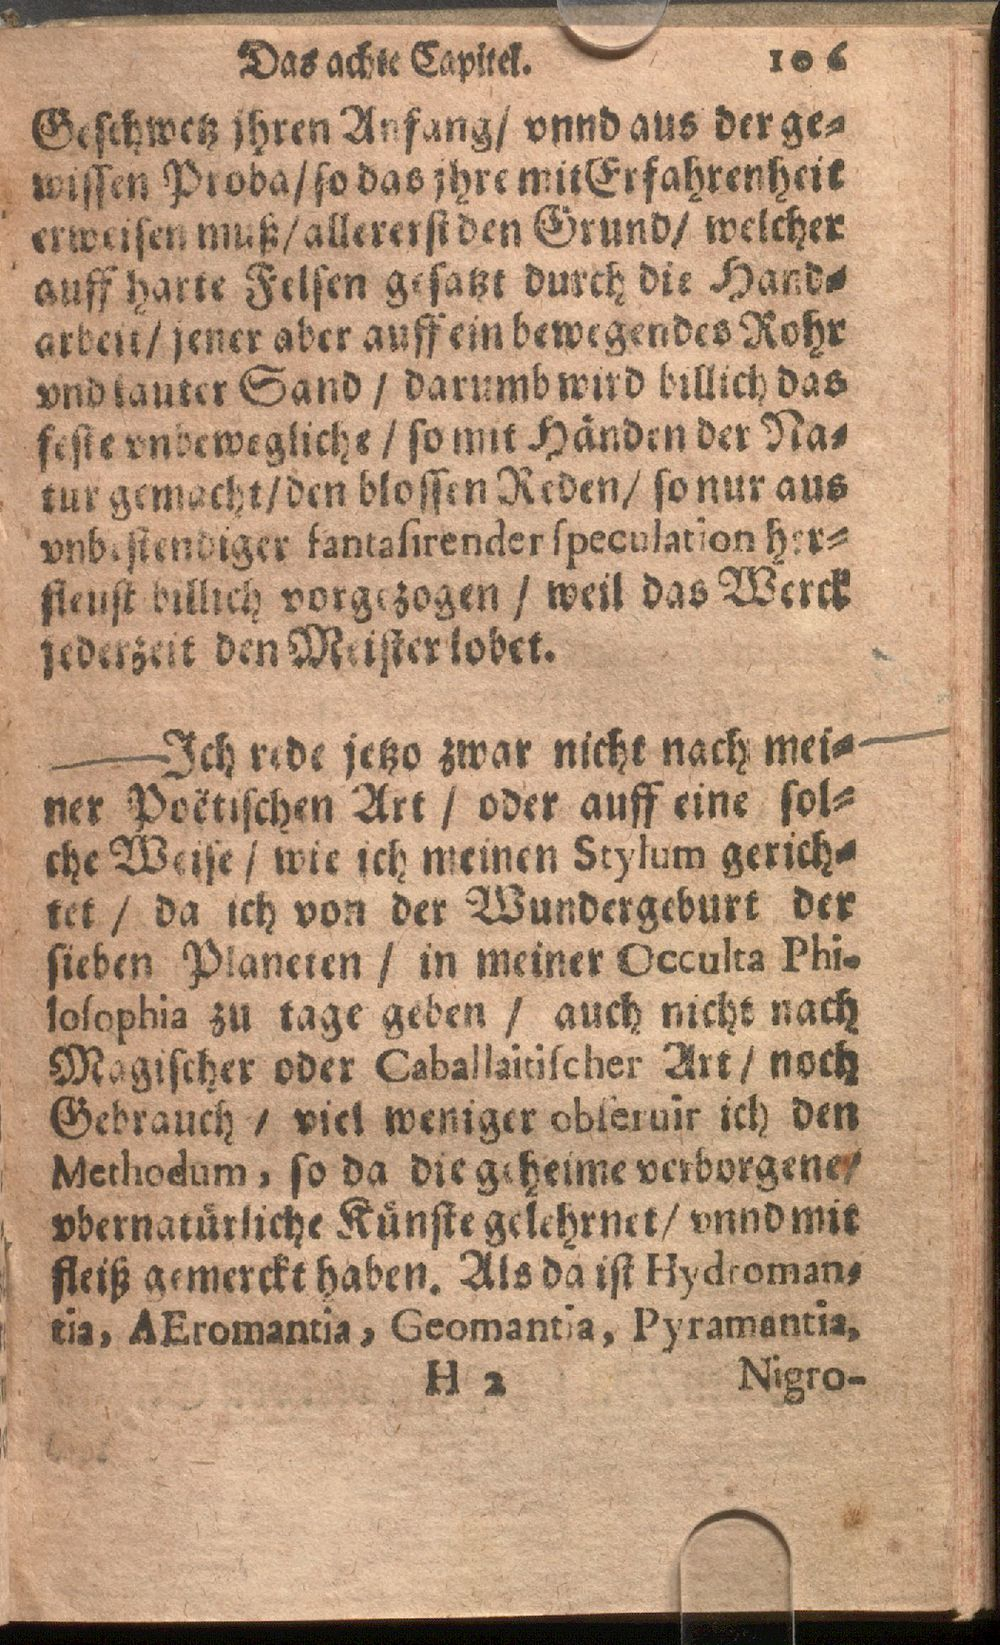 Das achte Capitel. 106
Geschwetz jhren Anfang/ vnnd aus der ge-
wissen Proba/ so das jhre mit Erfahrenheit
erweisen muß/ allererst den Grund/ welcher
auff harte Felsen gesatzt durch die Hand-
arbeit/ jener aber auff ein bewegendes Rohr
vnd lauter Sand / darumb wird billich das
feste vnbewegliche / so mit Händen der Na-
tur gemacht/ den blossen Reden/ so nur aus
vnbestendiger fantasirender speculation her-
fleust billich vorgezogen / weil das Werck
jederzeit den Meister lobet.
Ich rede jetzo zwar nicht nach mei-
ner Poëtischen Art / oder auff eine sol-
che Weise / wie ich meinen Stylum gerich-
tet / da ich von der Wundergeburt der
sieben Planeten / in meiner Occulta Phi-
losophia zu tage geben / auch nicht nach
Magischer oder Caballaitischer Art / noch
Gebrauch / viel weniger obseruir ich den
Methodum, so da die geheime verborgene/
vbernatürliche Künste gelehrnet/ vnnd mit
fleiß gemerckt haben. Als da ist Hydroman-
tia, AEromantia, Geomantia, Pyramantia,
H 2 Nigro-